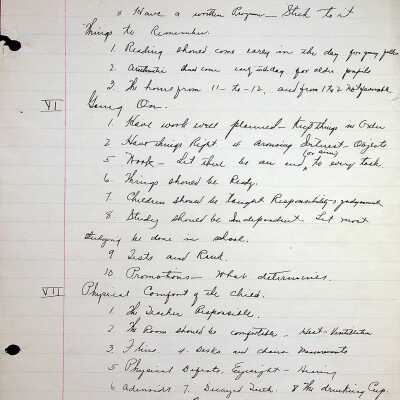 4 Have a written Program — Stick to it
Things to Remember
1. Reading should come early in the day for young
2. Arithmetic should come early in day for older pupils
3. The hours from 11 - to - 12. and from 1 to 2 Not favorable
VI Going On.
1. Have work well planned — Keep things in Order
2 Have things Right & arousing Interest - Objects
(or aim)
5 Work - Let there be an end, to every task
6. Things should be Ready.
7 Children should be taught Responsibility & judgment
8 Study should be Independent. Let most
studying be done in school.
9 Tests and Rank.
10 Promotions — What determines.
VII Physical Comfort of the Child.
1. The Teacher Responsible.
2. The Room should be comfortable. Heat - Ventilation
3. 4. Desks and chairs Measurements
5 Physical Defects, Eyesight - Hearing
6 adenoids 7. Decayed Teeth. 8 The drinking Cup.